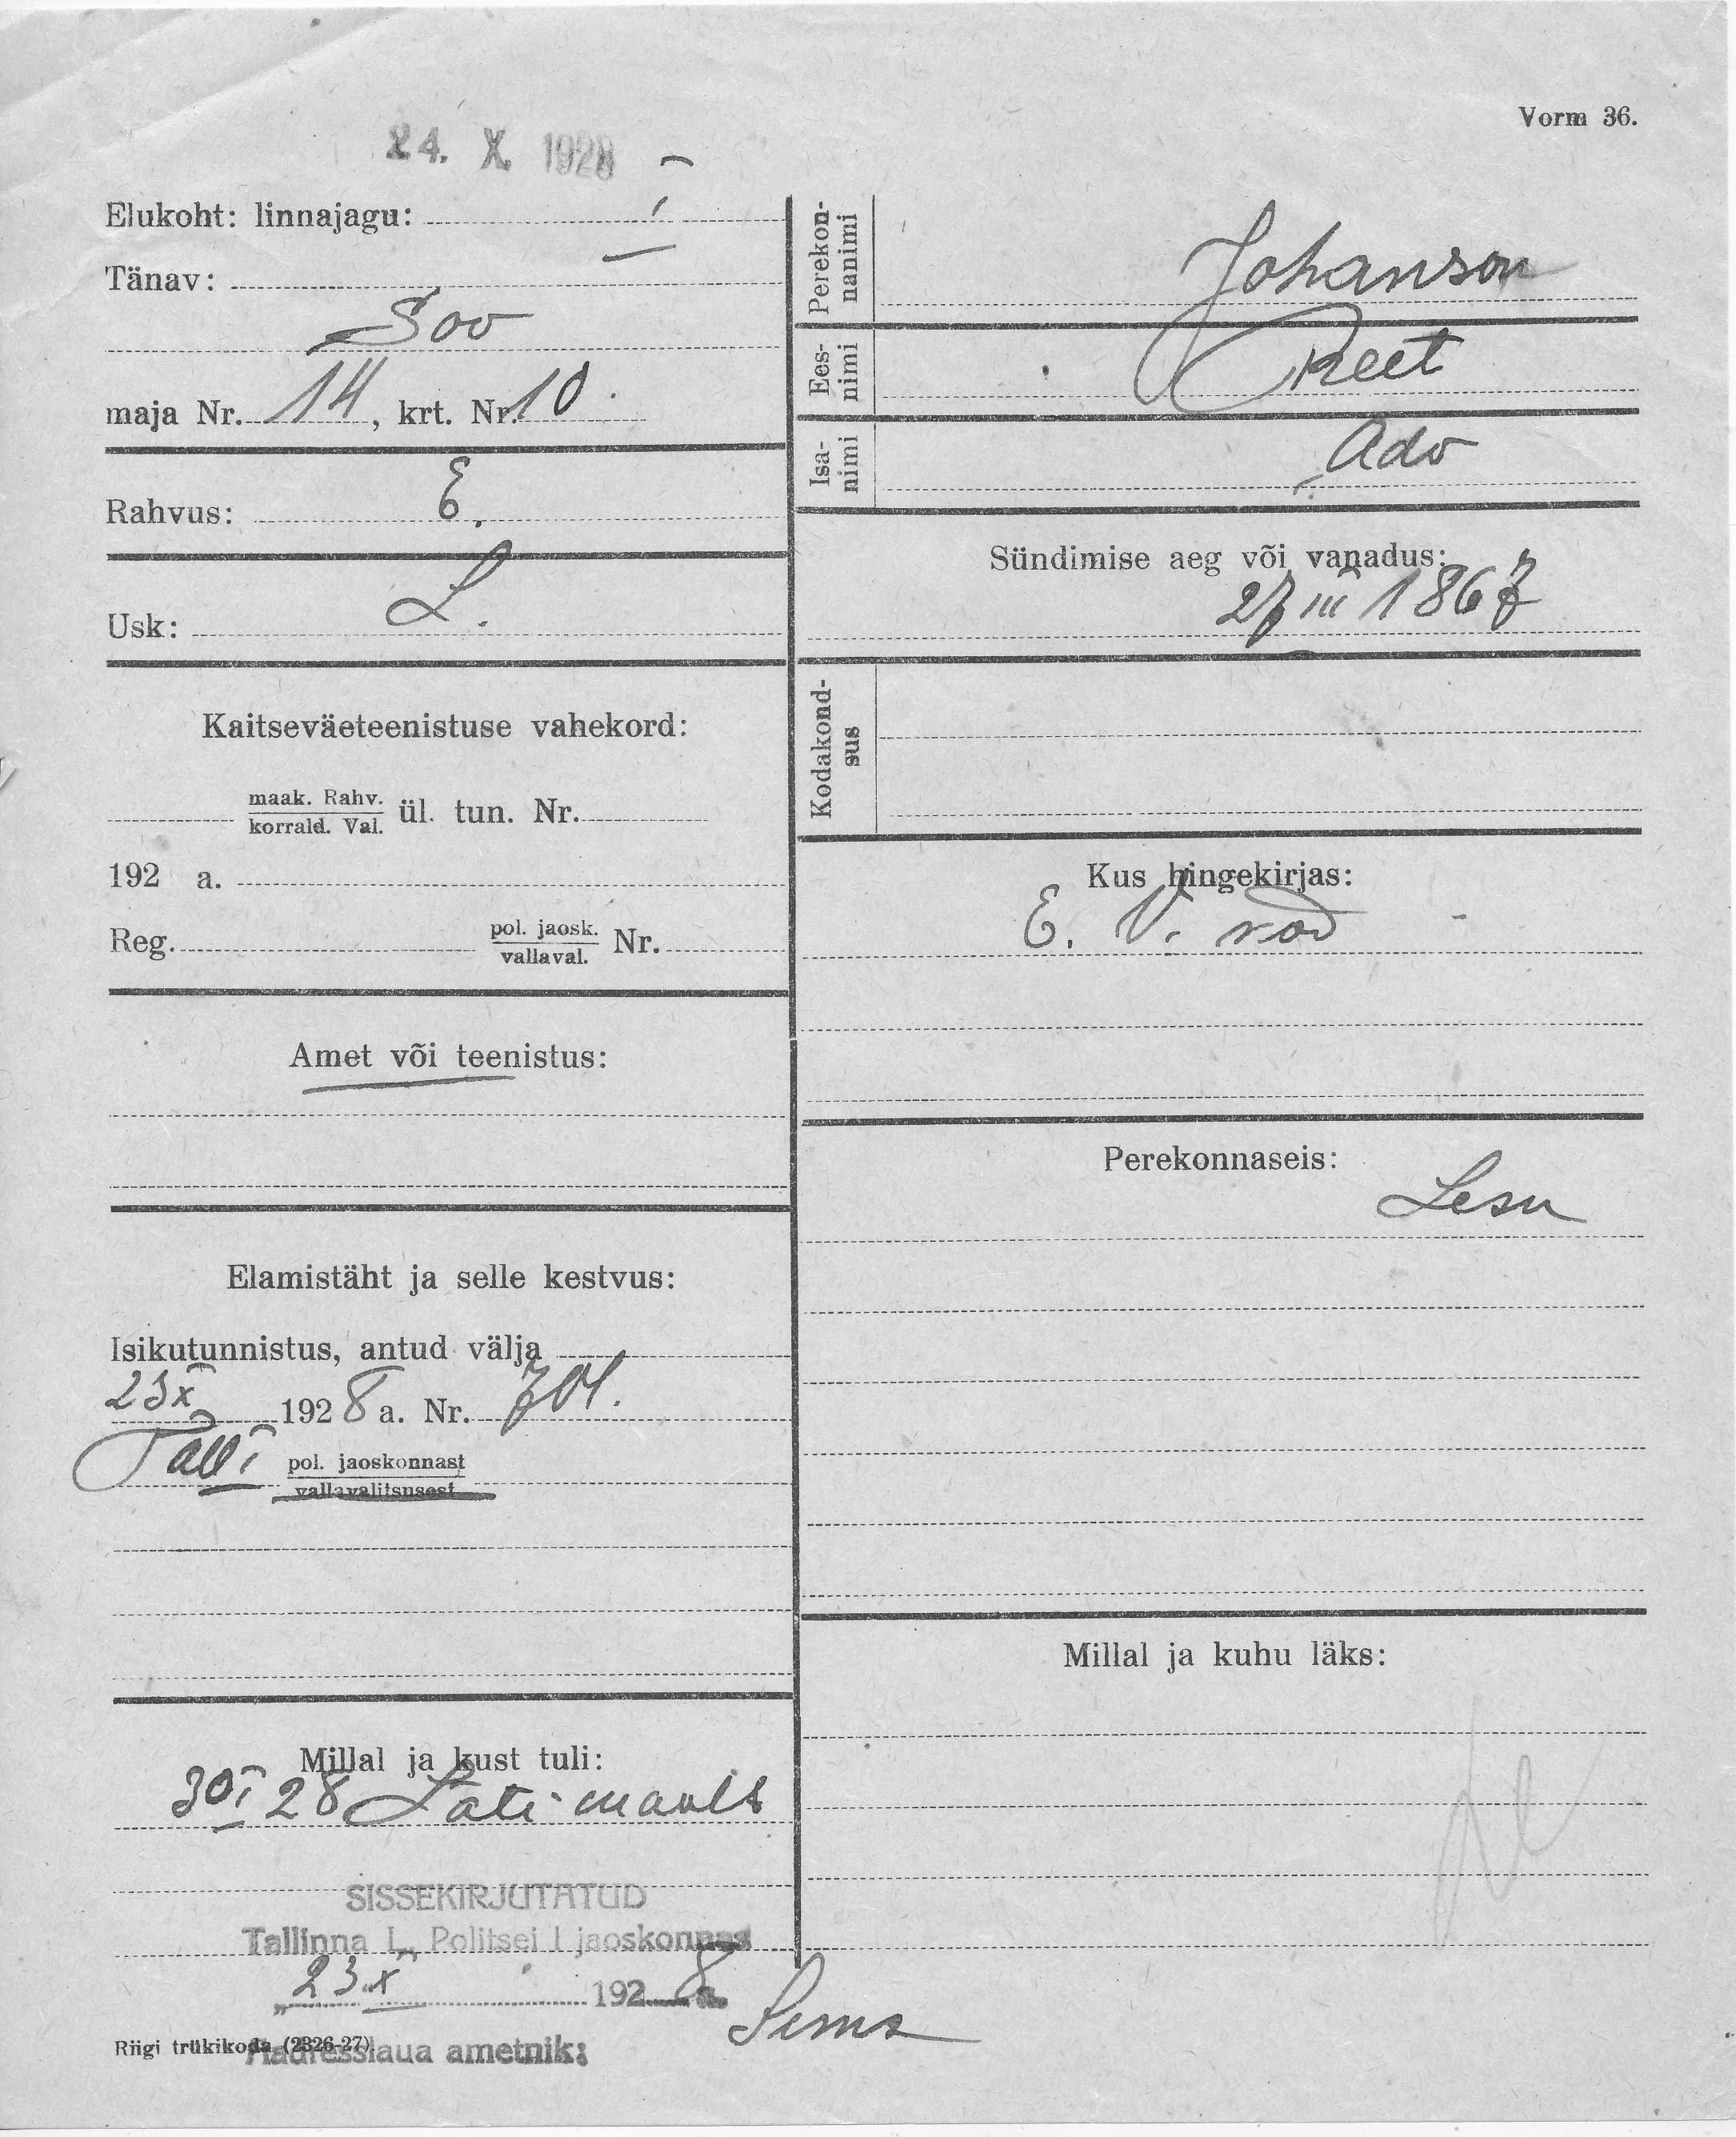 Vorm 36.
24. X. 1928
Elukoht: linnajagu: I
Tänav:
Soo
maja Nr. 14, krt. Nr. 10.
Rahvus: E.
Usk: L.
Kaitseväeteenistuse vahekord:
maak. Rahv.
korrald. Val. ül. tun. Nr.
192 a.
Reg. pol. jaosk.
vallaval. Nr.
Amet või teenistus:
Elamistäht ja selle kestvus:
Isikutunnistus, antud välja
23 X 1928 a. Nr. 701.
Tall I pol. jaoskonnast
vallavalitsusest
Millal ja kust tuli:
30 I 28 Läti maalt
SISSEKIRJUTATUD
Tallinna L. Politsei I jaoskonnas
"23" X 1928 a.
Aadresslaua ametnik:
Riigi trükikoda (2326-27).
Perekon-
nanimi
Johanson
Ees-
nimi
Reet
Isa-
nimi
Ado
Sündimise aeg või vanadus:
27 III 1867
Kodakond-
sus
Kus hingekirjas:
E. V.
Perekonnaseis:
Lesn
Millal ja kuhu läks: